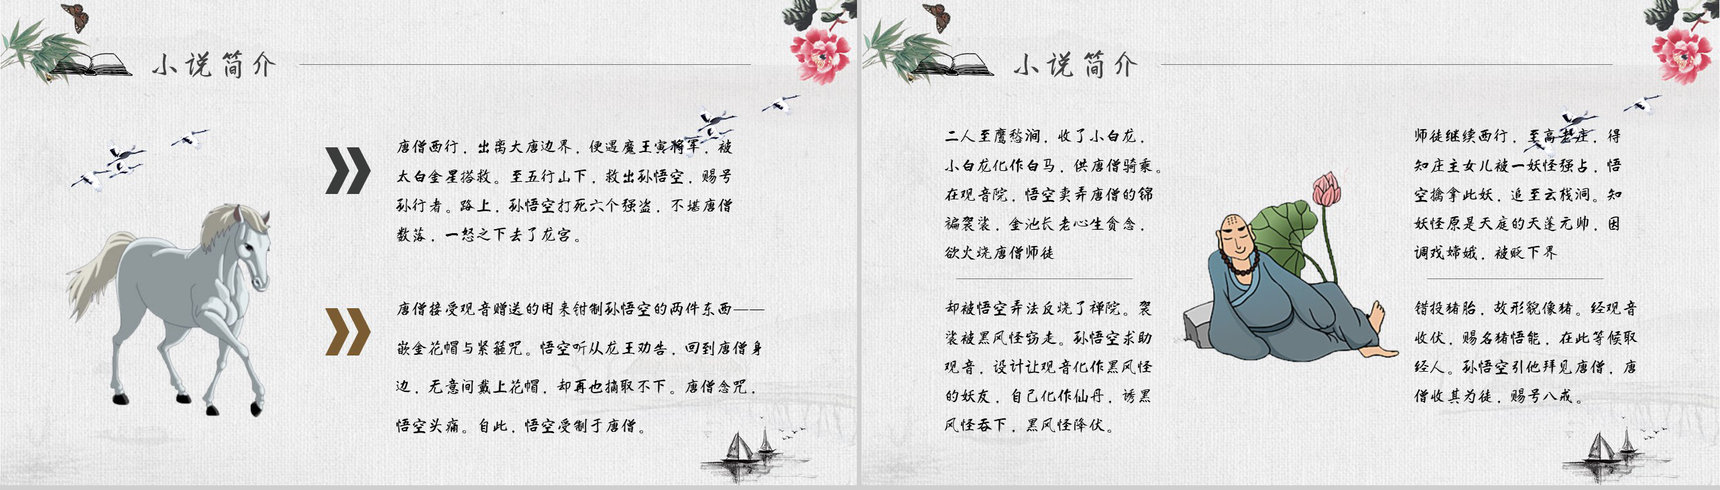 小说简介
唐僧西行，出离大唐边界，便遇魔王寅将军，被
太白金星搭救。至五行山下，救出孙悟空，赐号
孙行者。路上，孙悟空打死六个强盗，不堪唐僧
数落，一怒之下去了龙宫。
唐僧接受观音赠送的用来钳制孙悟空的两件东西——
嵌金花帽与紧箍咒。悟空听从龙王劝告，回到唐僧身
边，无意间戴上花帽，却再也摘取不下。唐僧念咒，
悟空头痛。自此，悟空受制于唐僧。
小说简介
二人至鹰愁涧，收了小白龙，
小白龙化作白马，供唐僧骑乘。
在观音院，悟空卖弄唐僧的锦
襕袈裟，金池长老心生贪念，
欲火烧唐僧师徒
却被悟空弄法反烧了禅院。袈
裟被黑风怪窃走。孙悟空求助
观音，设计让观音化作黑风怪
的妖友，自己化作仙丹，诱黑
风怪吞下，黑风怪降伏。
师徒继续西行，至高老庄，得
知庄主女儿被一妖怪强占，悟
空擒拿此妖，追至云栈洞。知
妖怪原是天庭的天蓬元帅，因
调戏嫦娥，被贬下界
错投猪胎，故形貌像猪。经观音
收伏，赐名猪悟能，在此等候取
经人。孙悟空引他拜见唐僧，唐
僧收其为徒，赐号八戒。